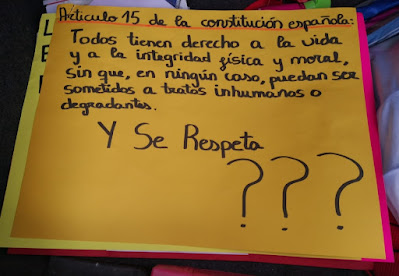 Articulo 15 de la constitución española:
Todos tienen derecho a la vida
y a la integridad física y moral,
sin que, en ningún caso, puedan ser
sometidos a tratos inhumanos o
degradantes.
Y Se Respeta
???